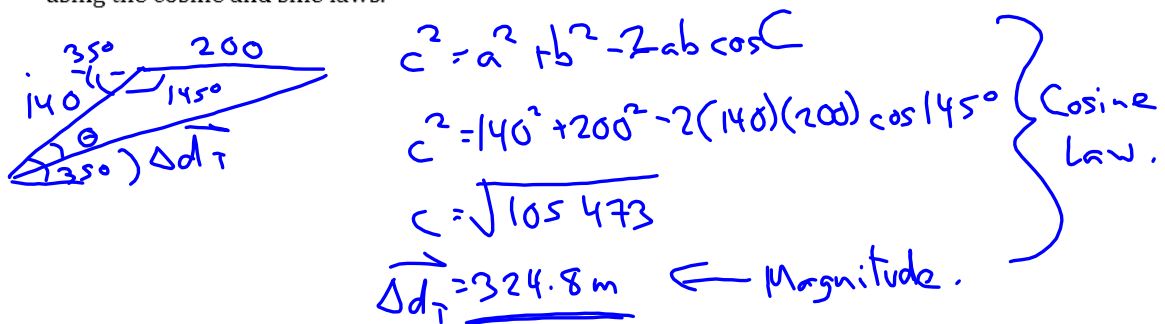 using the cosine and sine laws.
35° 200
140 145°
θ
35° Δd⃗_T
c² = a² + b² - 2ab cos C
c² = 140² + 200² - 2(140)(200) cos 145°
c = √105 473
Δd⃗_T = 324.8 m ← Magnitude.
} Cosine
Law.